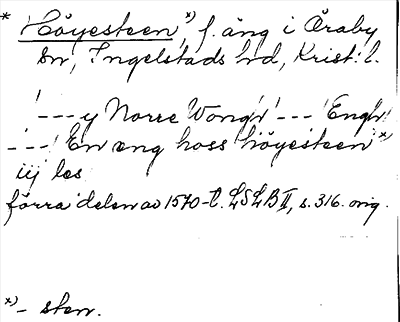 * Höyesteen,*) f. äng i Åraby
sn, Ingelstads hd, Krist. l.
'---y Norre Wong'r' --- 'Engh'
'---' En eng hoss höyesteen*)
iij les
förra delen av 1570-t. LSLB II, s. 316. orig.
*) - sten.